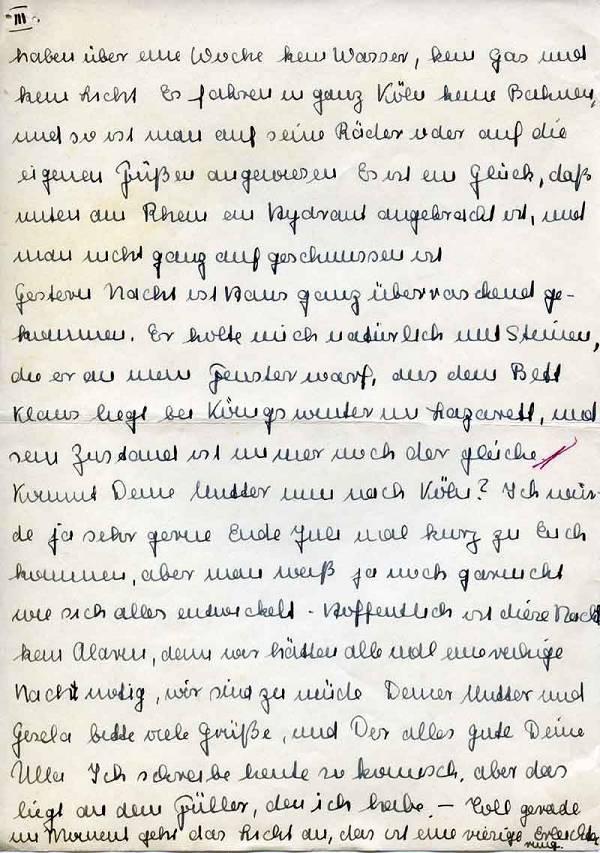 III
haben über eine Woche kein Wasser, kein Gas und
kein Licht Es fahren in ganz Köln keine Bahnen,
und so ist man auf seine Räder oder auf die
eigenen Füßen angewiesen Es ist ein Glück, daß
unten am Rhein ein Hydrant angebracht ist, und
man nicht ganz auf geschmissen ist
Gestern Nacht ist Hans ganz überraschend ge-
kommen. Er holte mich natürlich mit Steinen,
die er an mein Fenster warf, aus dem Bett
Klaus liegt bei Königswinter im Lazarett, und
sein Zustand ist immer noch der gleiche
Kommt Deine Mutter nun nach Köln? Ich wür-
de ja sehr gerne Ende Juli mal kurz zu Euch
kommen, aber man weiß ja noch garnicht
wie sich alles entwickelt - Hoffentlich ist diese Nacht
kein Alarm, denn wir hätten alle mal eine ruhige
Nacht nötig, wir sind zu müde Deiner Mutter und
Gisela bitte viele Grüße, und Dir alles gute Deine
Ulla Ich schreibe heute so komisch, aber das
liegt an dem Füller, den ich habe. - Toll gerade
im Moment geht das Licht an, das ist eine riesige Erleichte
rung.